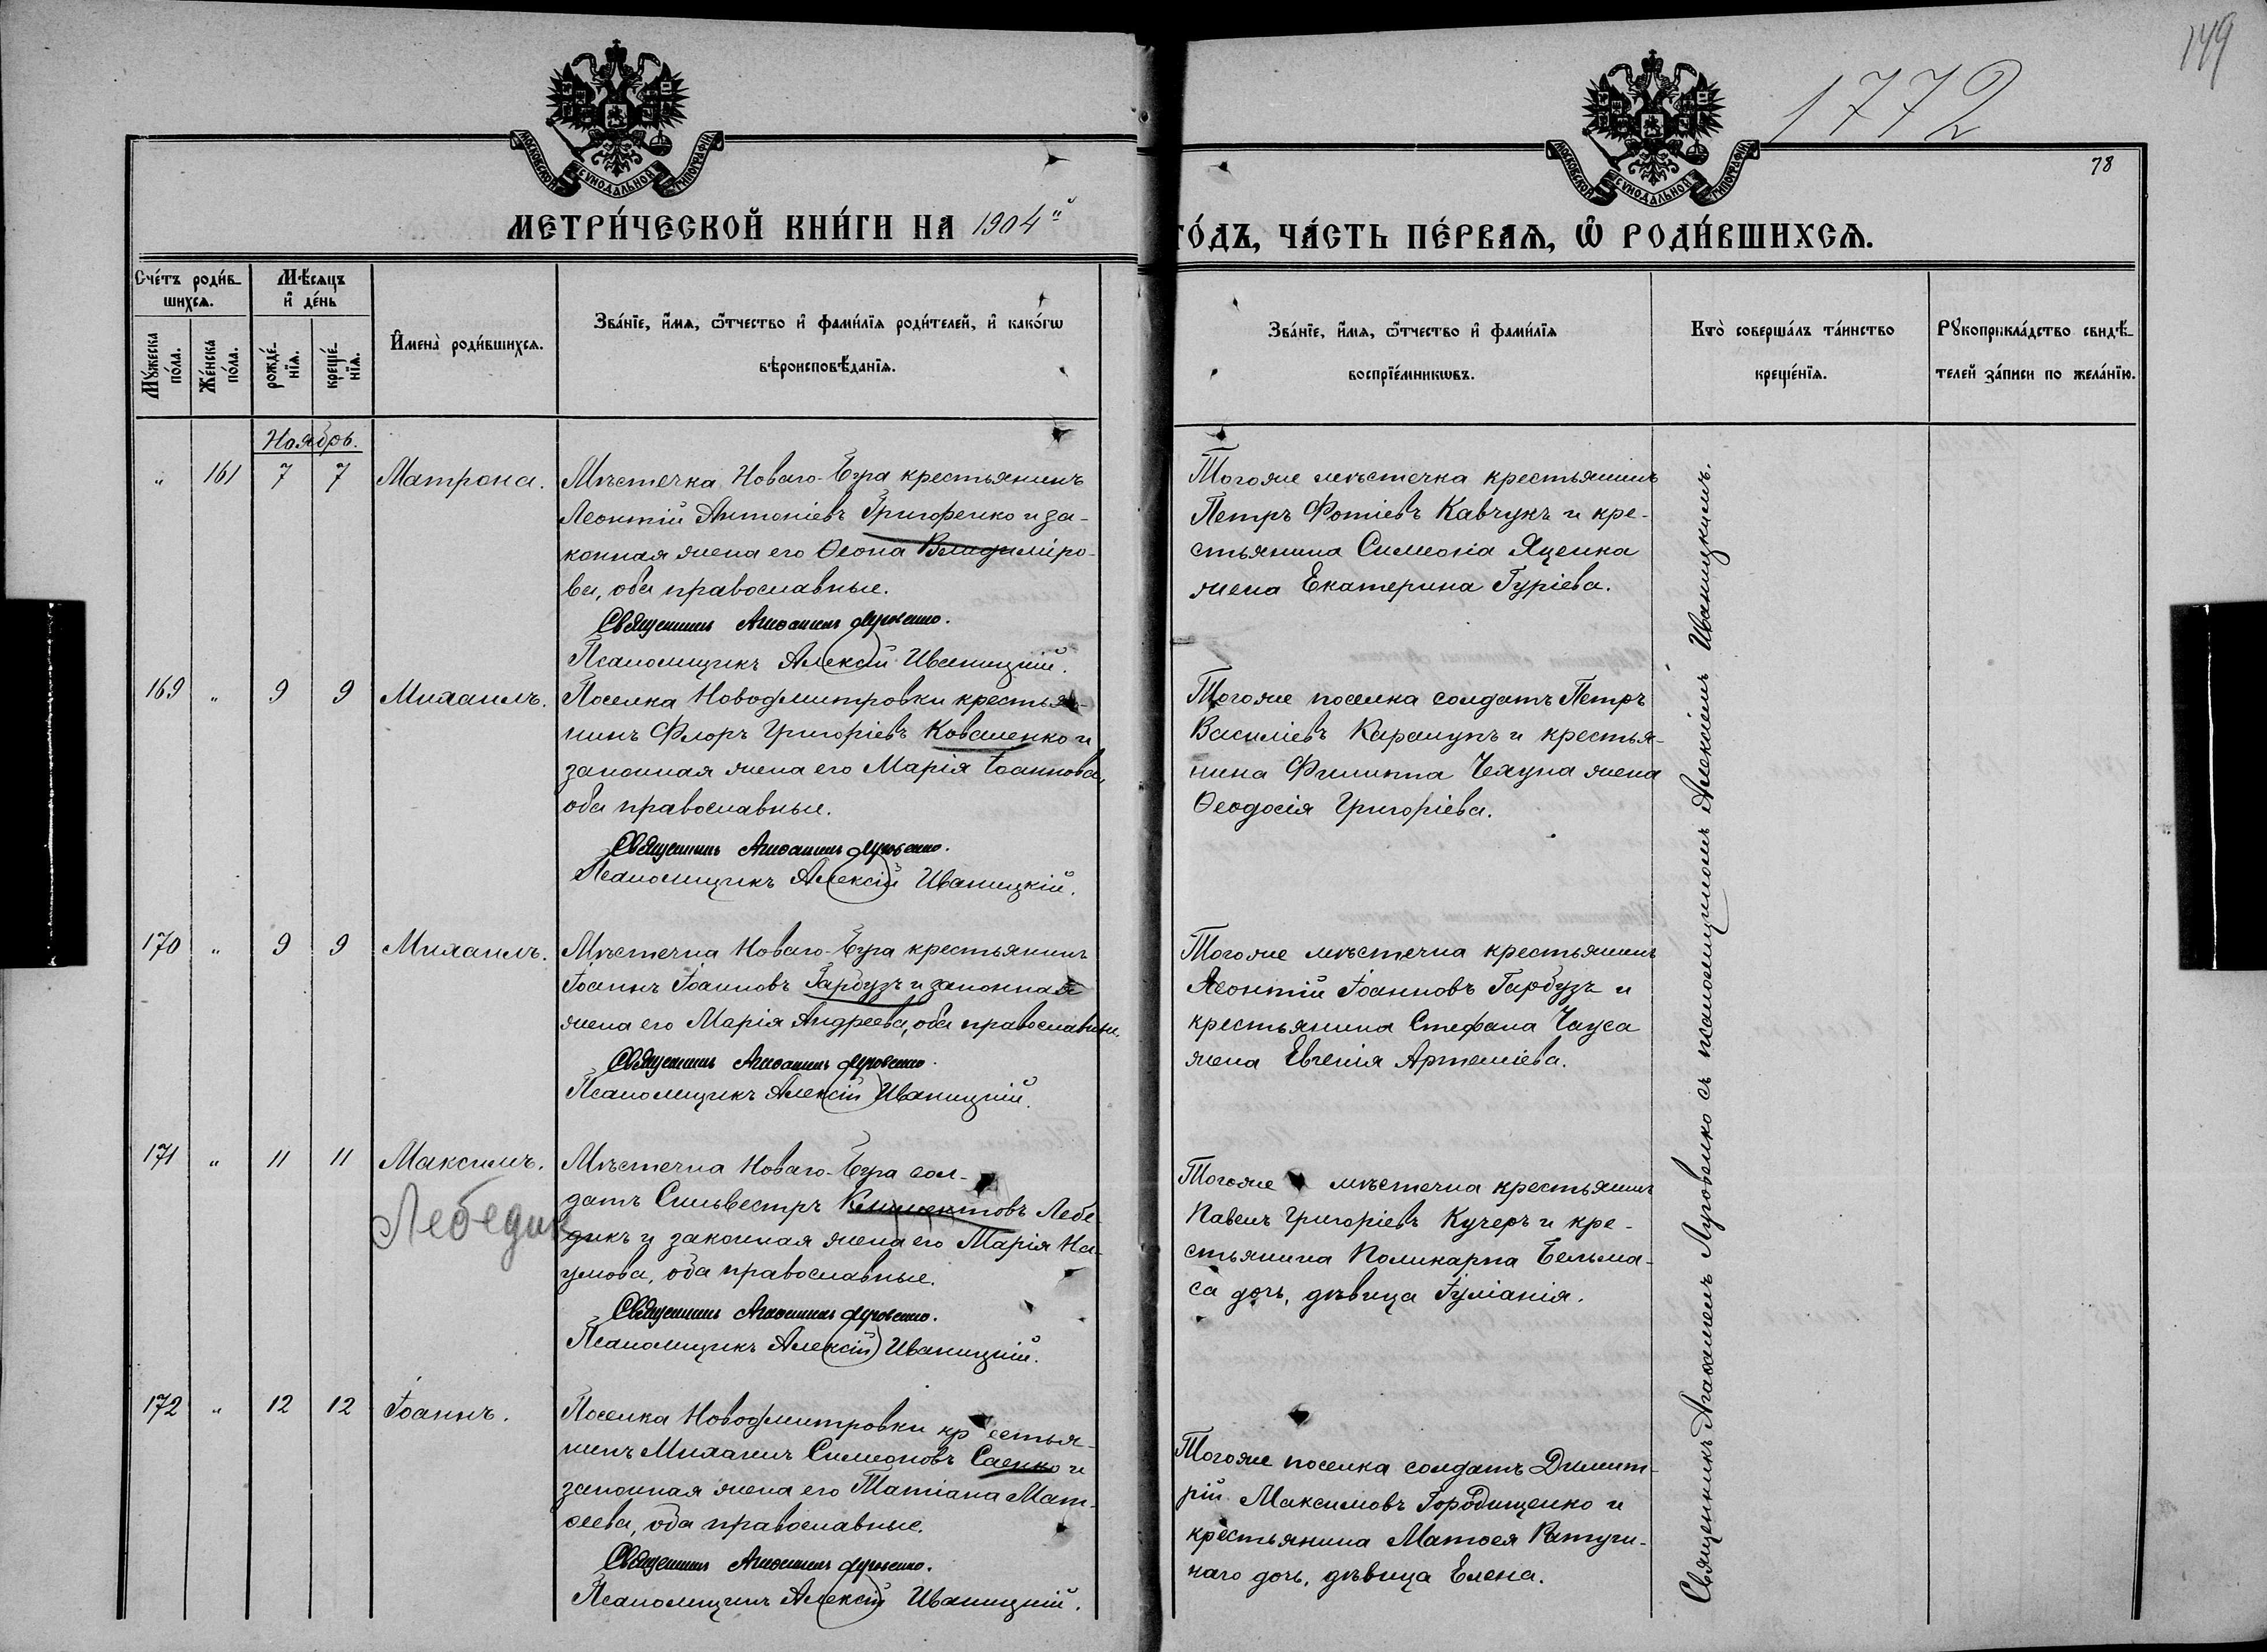 149
1772
78
МОСКОВСКОЙ СѴНОДАЛЬНОЙ ТИПОГРАФІИ
МОСКОВСКОЙ СѴНОДАЛЬНОЙ ТИПОГРАФІИ
МЕТРИ́ЧЕСКОЙ КНИ́ГИ НА 1904й
ГО́ДЪ, ЧА́СТЬ ПЕ́РВАѦ, Ѡ҆ РОДИ́ВШИХСѦ.
Сче́тъ роди́в-
шихсѧ.
Мѣ́сѧцъ
и҆ де́нь
Мꙋ́жеска
по́ла.
Же́нска
по́ла.
рожде́-
нїѧ.
креще́-
нїѧ.
И҆мена̀ роди́вшихсѧ.
Зва́нїе, и҆́мѧ, ѻ҆́тчество и҆ фами́лїѧ роди́телей, и҆ како́гѡ
вѣроисповѣ́данїѧ.
Зва́нїе, и҆́мѧ, ѻ҆́тчество и҆ фами́лїѧ
воспрїе́мникѡвъ.
Кто̀ соверша́лъ та́инство
креще́нїѧ.
Рꙋкоприкла́дство свидѣ́-
телей за́писи по жела́нїю.
Ноябрь.
" 161 7 7 Матрона.
Мѣстечка Новаго-Буга крестьянинъ
Леонтій Антоніевъ Григоренко и за-
конная жена его Ѳеона Владиміро-
ва, оба православные.
Священникъ Агаѳангелъ Луговенко.
Псаломщикъ Алексій Иваницкій.
Тогоже мѣстечка крестьянинъ
Петръ Фотіевъ Кавчукъ и кре-
стьянина Симеона Яценка
жена Екатерина Гуріева.
169 " 9 9 Михаилъ.
Поселка Новодмитровки крестья-
нинъ Флоръ Григоріевъ Коваленко и
законная жена его Марія Іоаннова,
оба православные.
Священникъ Агаѳангелъ Луговенко.
Псаломщикъ Алексій Иваницкій.
Тогоже поселка солдатъ Петръ
Василіевъ Карамунъ и крестья-
нина Филиппа Чахуна жена
Ѳеодосія Григоріева.
170 " 9 9 Михаилъ.
Мѣстечка Новаго-Буга крестьянинъ
Іоаннъ Іоанновъ Гарбузъ и законная
жена его Марія Андреева, оба православные.
Священникъ Агаѳангелъ Луговенко.
Псаломщикъ Алексій Иваницкій.
Тогоже мѣстечка крестьянинъ
Леонтій Іоанновъ Гарбузъ и
крестьянина Стефана Чауса
жена Евгенія Артеміева.
171 " 11 11 Максимъ.
Лебедик
Мѣстечка Новаго-Буга сол-
датъ Сильвестръ Климентовъ Лебе-
дикъ и законная жена его Марія На-
умова, оба православные.
Священникъ Агаѳангелъ Луговенко.
Псаломщикъ Алексій Иваницкій.
Тогоже мѣстечка крестьянинъ
Павелъ Григоріевъ Кучеръ и кре-
стьянина Поликарпа Бельма-
са дочь, дѣвица Іуліанія.
172 " 12 12 Іоаннъ.
Поселка Новодмитровки крестья-
нинъ Михаилъ Симеоновъ Саенко и
законная жена его Татіана Мат-
ѳеева, оба православные.
Священникъ Агаѳангелъ Луговенко.
Псаломщикъ Алексій Иваницкій.
Тогоже поселка солдатъ Димит-
рій Максимовъ Городищенко и
крестьянина Матѳея Ратуш-
наго дочь, дѣвица Елена.
Священникъ Агаѳангелъ Луговенко съ псаломщикомъ Алексіемъ Иваницкимъ.